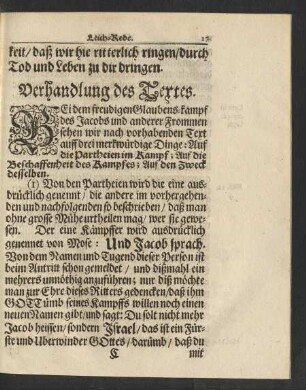 Leich-Rede. 17
keit/ daß wir hie ritterlich ringen/ durch
Tod und Leben zu dir dringen.
Verhandlung des Textes.
BEi dem freudigen Glaubens-kampf
des Jacobs und anderer Frommen
sehen wir nach vorhabenden Text
auff drei merckwürdige Dinge: Auf
die Partheien im Kampf; Auf die
Beschaffenheit des Kampfes; Auf den Zweck
desselben.
(1) Von den Partheien wird die eine aus-
drücklich genennt/ die andere im vorhergehen-
den und nachfolgenden so beschrieben/ daß man
ohne grosse Mühe urtheilen mag/ wer sie gewe-
sen. Der eine Kämpffer wird ausdrücklich
genennet von Mose: Und Jacob sprach.
Von dem Namen und Tugend dieser Person ist
beim Antritt schon gemeldet/ und dißmahl ein
mehrers unnöthig anzuführen; nur diß möchte
man zur Ehre dieses Ritters gedencken/ daß ihm
GOTT ümb seines Kampffs willen noch einen
neuen Namen gibt/ und sagt: Du solt nicht mehr
Jacob heissen/ sondern Israel/ das ist ein Für-
ste und Uberwinder GOttes/ darümb/ daß du
C mit